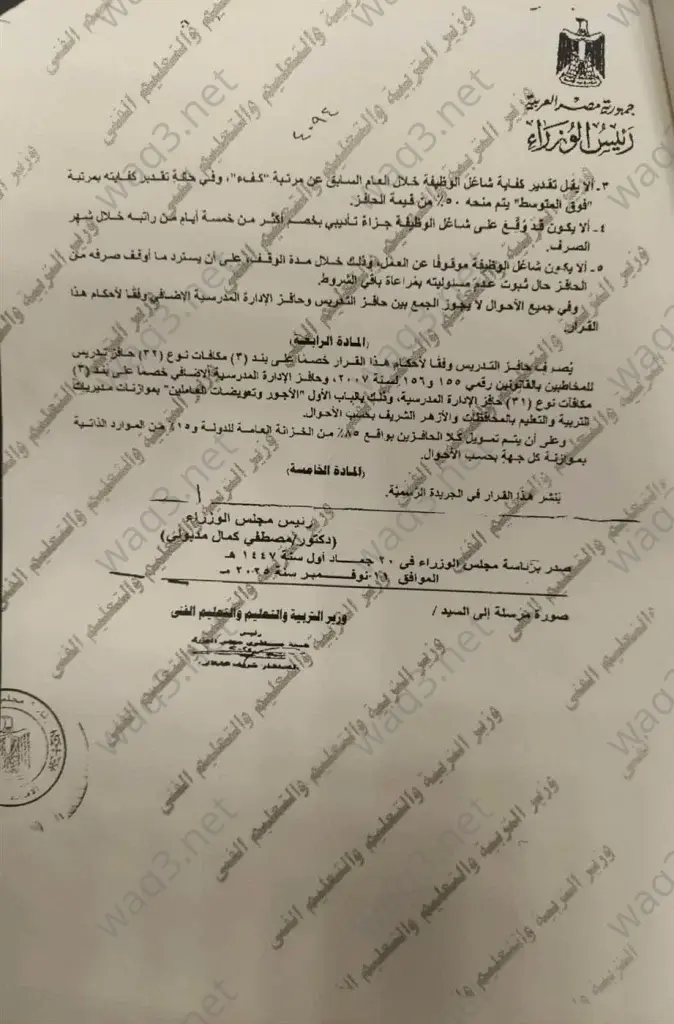 جمهورية مصر العربية
رئيس الوزراء
٤٠٩٤
٣- ألا يقل تقدير كفاية شاغل الوظيفة خلال العام السابق عن مرتبة "كفء"، وفي حالة تقدير كفايته بمرتبة
"فوق المتوسط" يتم منحه ٥٠٪ من قيمة الحافز.
٤- ألا يكون قد وُقّع على شاغل الوظيفة جزاءً تأديبي بخصم أكثر من خمسة أيام من راتبه خلال شهر
الصرف.
٥- ألا يكون شاغل الوظيفة موقوفًا عن العمل، وذلك خلال مدة الوقف، على أن يسترد ما أوقف صرفه من
الحافز حال ثبوت عدم مسئوليته بمراعاة باقي الشروط.
وفي جميع الأحوال لا يجوز الجمع بين حافز التدريس وحافز الإدارة المدرسية الإضافي وفقًا لأحكام هذا
القرار.
(المادة الرابعة)
يُصرف حافز التدريس وفقًا لأحكام هذا القرار خصمًا على بند (٣) مكافآت نوع (٣٢) حافز تدريس
للمخاطبين بالقانونين رقمي ١٥٥ و١٥٦ لسنة ٢٠٠٧، وحافز الإدارة المدرسية الإضافي خصمًا على بند (٣)
مكافآت نوع (٣١) حافز الإدارة المدرسية، وذلك بالباب الأول "الأجور وتعويضات العاملين" بموازنات مديريات
التربية والتعليم بالمحافظات والأزهر الشريف بحسب الأحوال.
وعلى أن يتم تمويل كلا الحافزين بواقع ٨٥٪ من الخزانة العامة للدولة و١٥٪ من الموارد الذاتية
بموازنة كل جهة بحسب الأحوال.
(المادة الخامسة)
يُنشر هذا القرار في الجريدة الرسمية.
رئيس مجلس الوزراء
(دكتور/مصطفى كمال مدبولي)
صدر برئاسة مجلس الوزراء في ٢٠ جمـاد أول سنة ١٤٤٧ هـ
الموافق ١١ نوفـمـبر سنة ٢٠٢٥ مـ
صورة مرسلة إلى السيد / وزير التربية والتعليم والتعليم الفنى
رئيس
وزير التربية والتعليم والتعليم الفنى
waq3.net